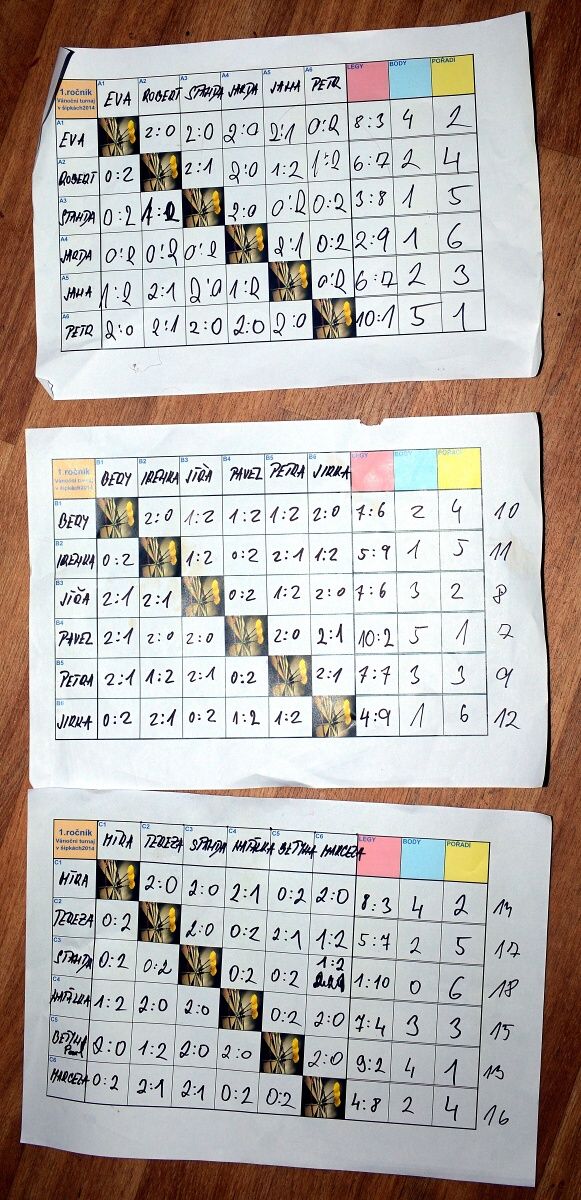 1.ročník Vánoční turnaj v šipkách2014 A1 EVA A2 ROBERT A3 STANDA A4 JARDA A5 JANA A6 PETR LEGY BODY POŘADÍ
A1 EVA 2:0 2:0 2:0 2:1 0:2 8:3 4 2
A2 ROBERT 0:2 2:1 2:0 1:2 1:2 6:7 2 4
A3 STANDA 0:2 1:2 2:0 0:2 0:2 3:8 1 5
A4 JARDA 0:2 0:2 0:2 2:1 0:2 2:9 1 6
A5 JANA 1:2 2:1 2:0 1:2 0:2 6:7 2 3
A6 PETR 2:0 2:1 2:0 2:0 2:0 10:1 5 1
1.ročník Vánoční turnaj v šipkách2014 B1 BERY B2 IRENKA B3 JÍŘA B4 PAVEL B5 PETRA B6 JIRKA LEGY BODY POŘADÍ
B1 BERY 2:0 1:2 1:2 1:2 2:0 7:6 2 4 10
B2 IRENKA 0:2 1:2 0:2 2:1 1:2 5:9 1 5 11
B3 JÍŘA 2:1 2:1 0:2 1:2 2:0 7:6 3 2 8
B4 PAVEL 2:1 2:0 2:0 2:0 2:1 10:2 5 1 7
B5 PETRA 2:1 1:2 2:1 0:2 2:1 7:7 3 3 9
B6 JIRKA 0:2 2:1 0:2 1:2 1:2 4:9 1 6 12
1.ročník Vánoční turnaj v šipkách2014 C1 MÍRA C2 TEREZA C3 STANDA C4 NATÁLKA C5 BETYNA C6 MARCELA LEGY BODY POŘADÍ
C1 MÍRA 2:0 2:0 2:1 0:2 2:0 8:3 4 2 14
C2 TEREZA 0:2 2:0 0:2 2:1 1:2 5:7 2 5 17
C3 STANDA 0:2 0:2 0:2 0:2 1:2 1:10 0 6 18
C4 NATÁLKA 1:2 2:0 2:0 0:2 2:0 7:4 3 3 15
C5 BETYNA 2:0 1:2 2:0 2:0 2:0 9:2 4 1 13
C6 MARCELA 0:2 2:1 2:1 0:2 0:2 4:8 2 4 16